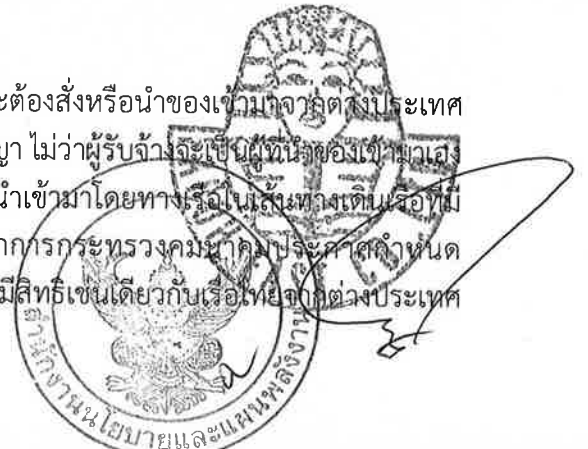 ะต้องสั่งหรือนำของเข้ามาจากต่างประเทศ
ญา ไม่ว่าผู้รับจ้างจะเป็นผู้ที่นำของเข้ามาเอง
นำเข้ามาโดยทางเรือในเส้นทางเดินเรือที่มี
าการกระทรวงคมนาคมประกาศกำหนด
มีสิทธิเช่นเดียวกับเรือไทยจากต่างประเทศ
สำนักงานนโยบายและแผนพลังงาน